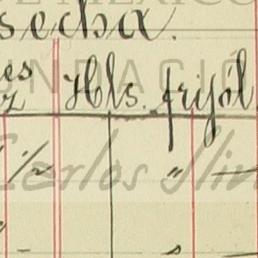 secha.
es Hls. frijol
z
1/2 "
Carlos Slim
"